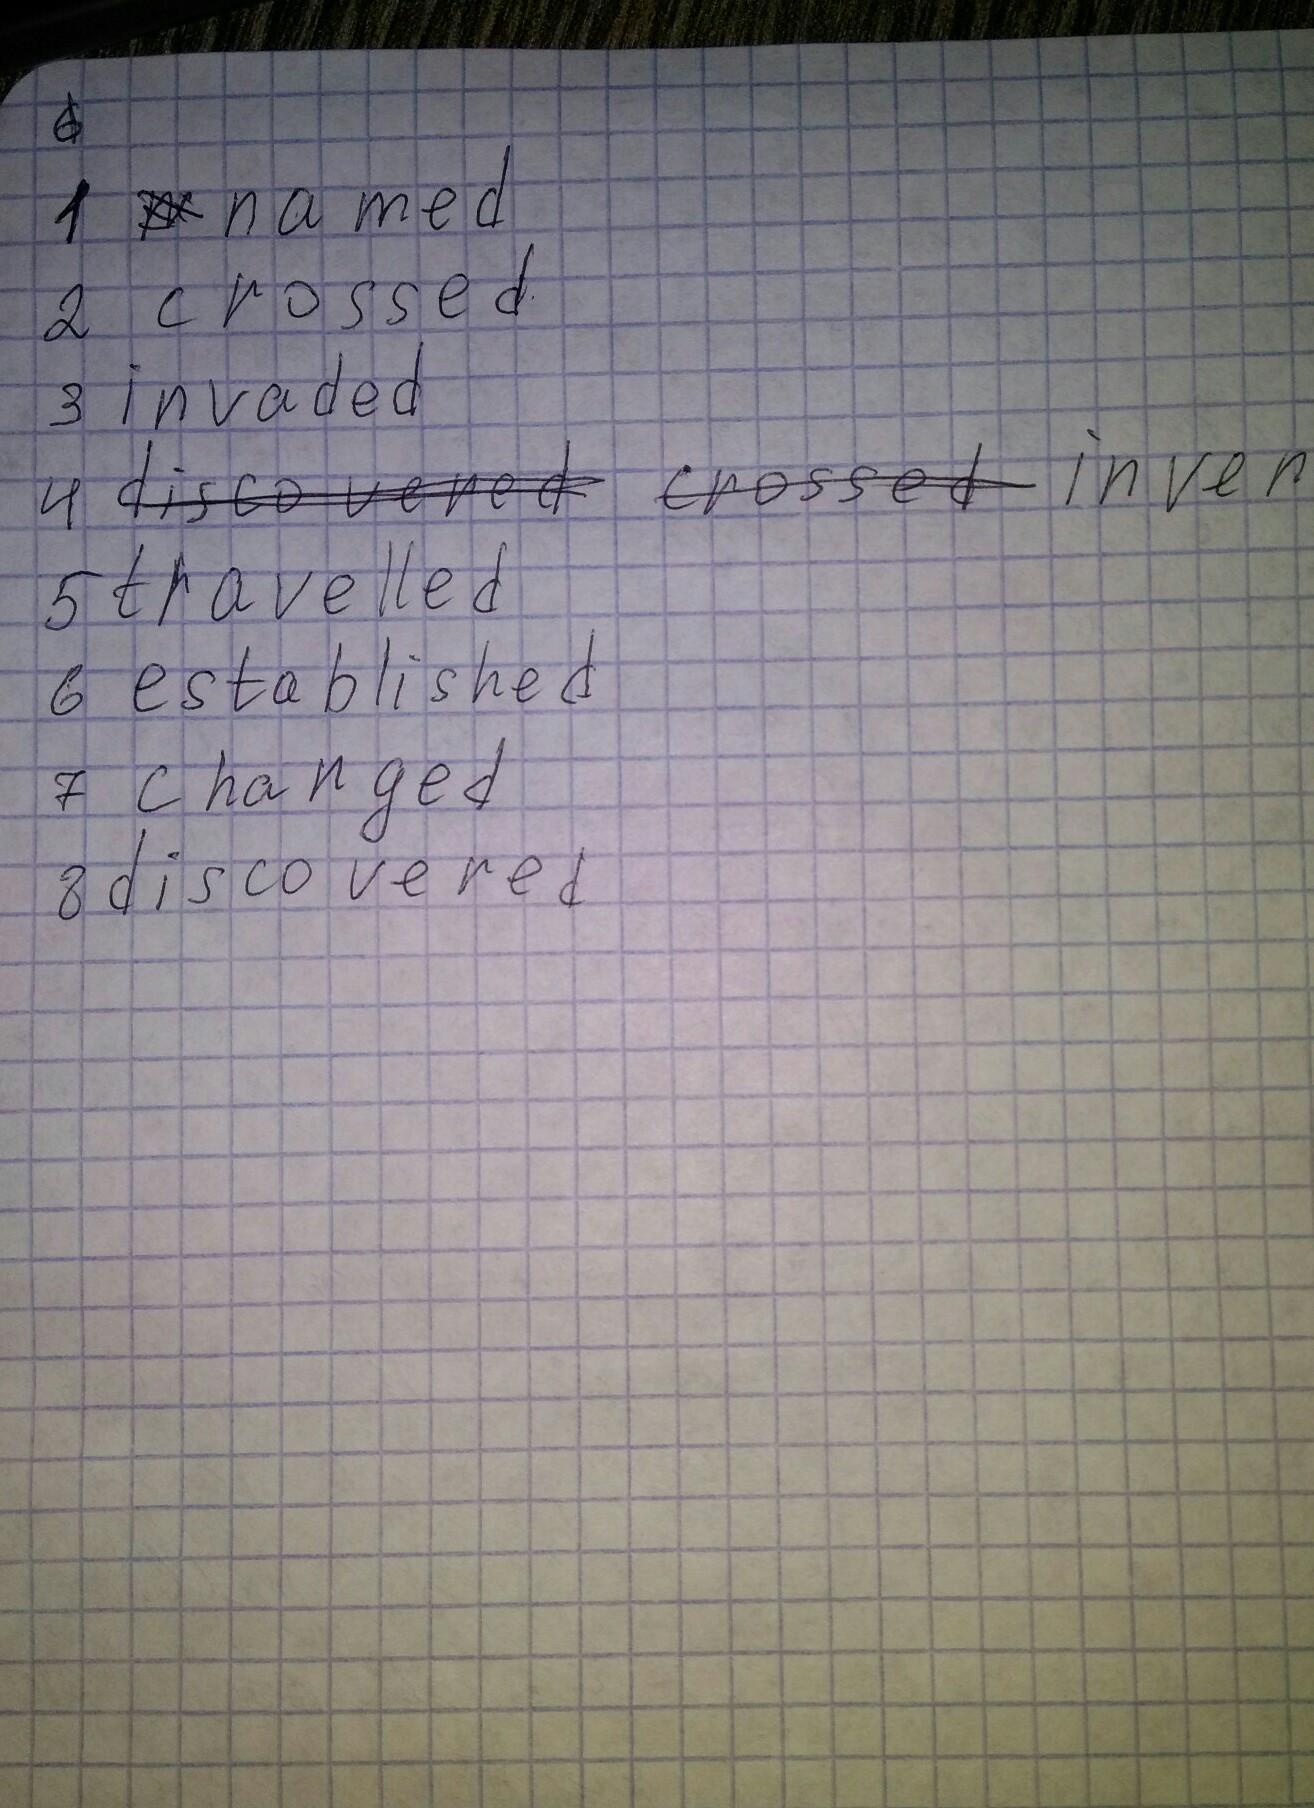 1 named
2 crossed
3 invaded
4 discovered crossed inven
5 travelled
6 established
7 changed
8 discovered